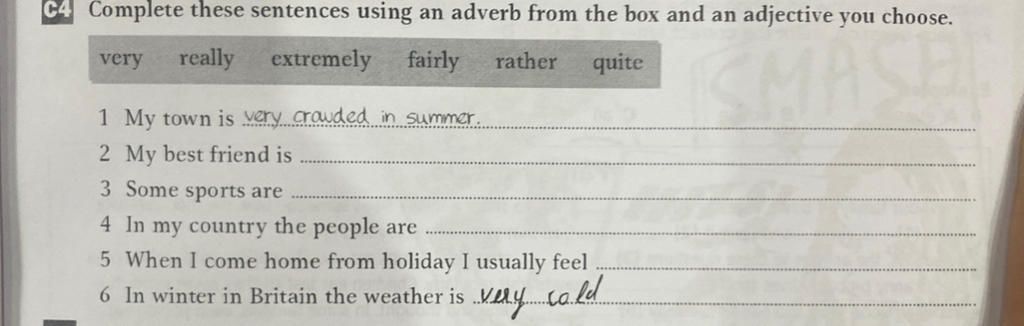 C4 Complete these sentences using an adverb from the box and an adjective you choose.
very really extremely fairly rather quite
1 My town is very crowded in summer.
2 My best friend is
3 Some sports are
4 In my country the people are
5 When I come home from holiday I usually feel
6 In winter in Britain the weather is very cold